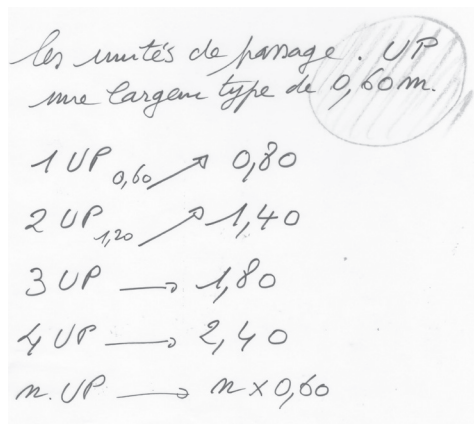 les unités de passage. UP
une largeur type de 0,60m.
1 UP 0,60 ↗ 0,80
2 UP 1,20 ↗ 1,40
3 UP → 1,80
4 UP → 2,40
n. UP → n x 0,60